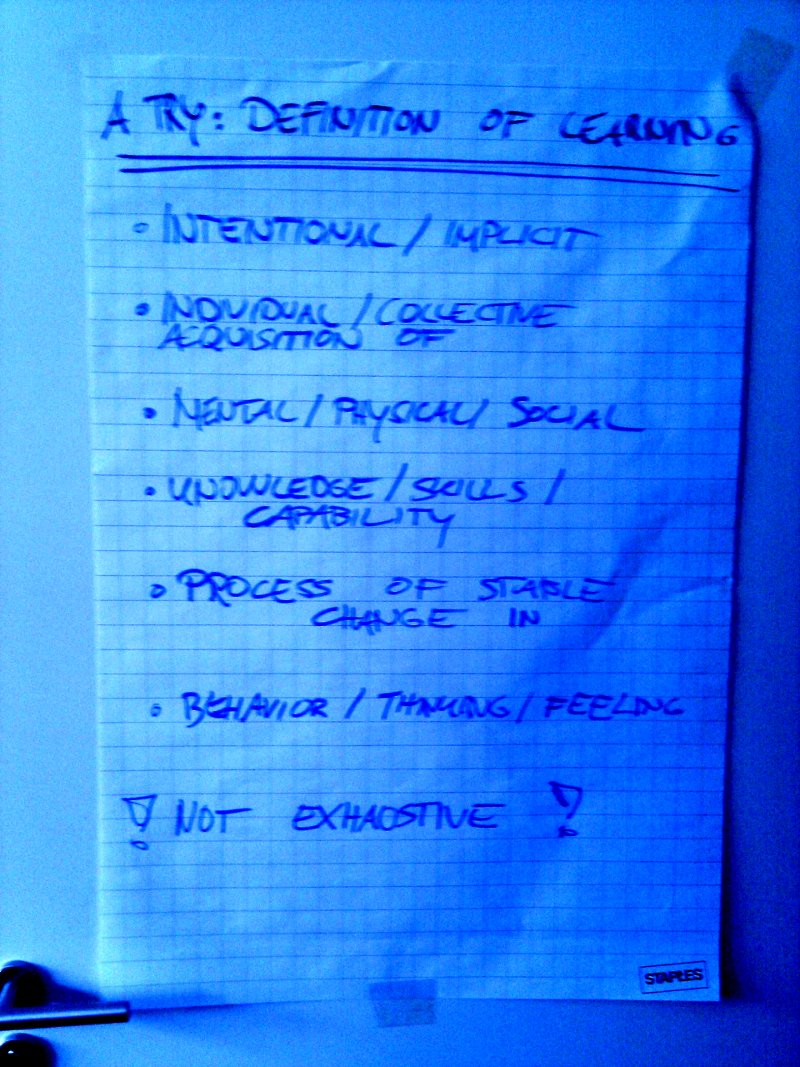 A TRY: DEFINITION OF LEARNING
• INTENTIONAL / IMPLICIT
• INDIVIDUAL / COLLECTIVE
ACQUISITION OF
• MENTAL / PHYSICAL / SOCIAL
• KNOWLEDGE / SKILLS /
CAPABILITY
• PROCESS OF STABLE
CHANGE IN
• BEHAVIOR / THINKING / FEELING
! NOT EXHAUSTIVE !
STAPLES